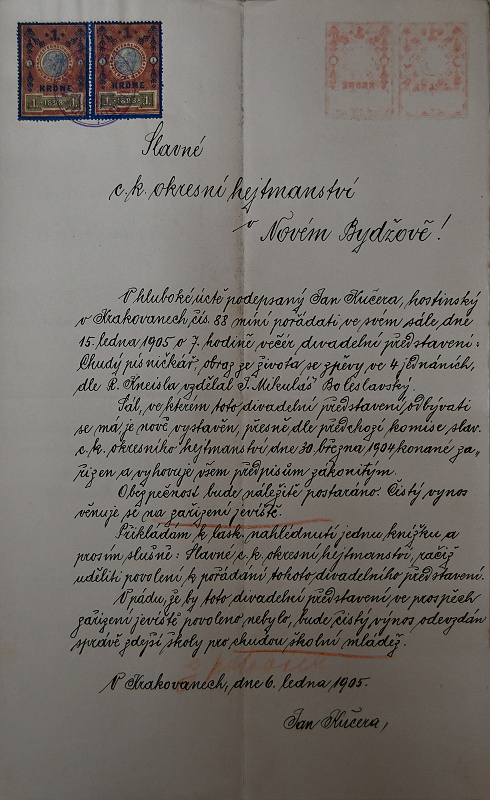 1 1
KRONE KRONE
1 1898 1 1 1898 1
Slavné
c. k. okresní hejtmanství
v
Novém Bydžově!
V hluboké úctě podepsaný Jan Kučera, hostinský
v Krakovanech, čís. 88 míní pořádati ve svém sále, dne
15. ledna 1905 o 7. hodině večer divadelní představení:
Chudý písničkář, obraz ze života se zpěvy ve 4 jednáních,
dle R. Kneisla vzdělal J. Mikuláš Boleslavský.
Sál, ve kterém toto divadelní představení, odbývati
se má, je nově vystavěn, přesně dle předchozí komise slav.
c. k. okresního hejtmanství dne 30. března 1904 konané za„
řízen a vyhovuje všem předpisům zákonitým.
O bezpečnost bude náležitě postaráno. Čistý výnos
věnuje se na zařízení jeviště.
Přikládám k lask. nahlédnutí jednu knížku a
prosím slušně: Slavné c. k. okresní hejtmanství, račiž
uděliti povolení k pořádání tohoto divadelního představení.
V pádu, že by toto divadelní představení, ve prospěch
zařízení jeviště povoleno nebylo, bude čistý výnos odevzdán
správě zdejší školy pro chudou školní mládež.
V Krakovanech, dne 6. ledna 1905.
Jan Kučera,